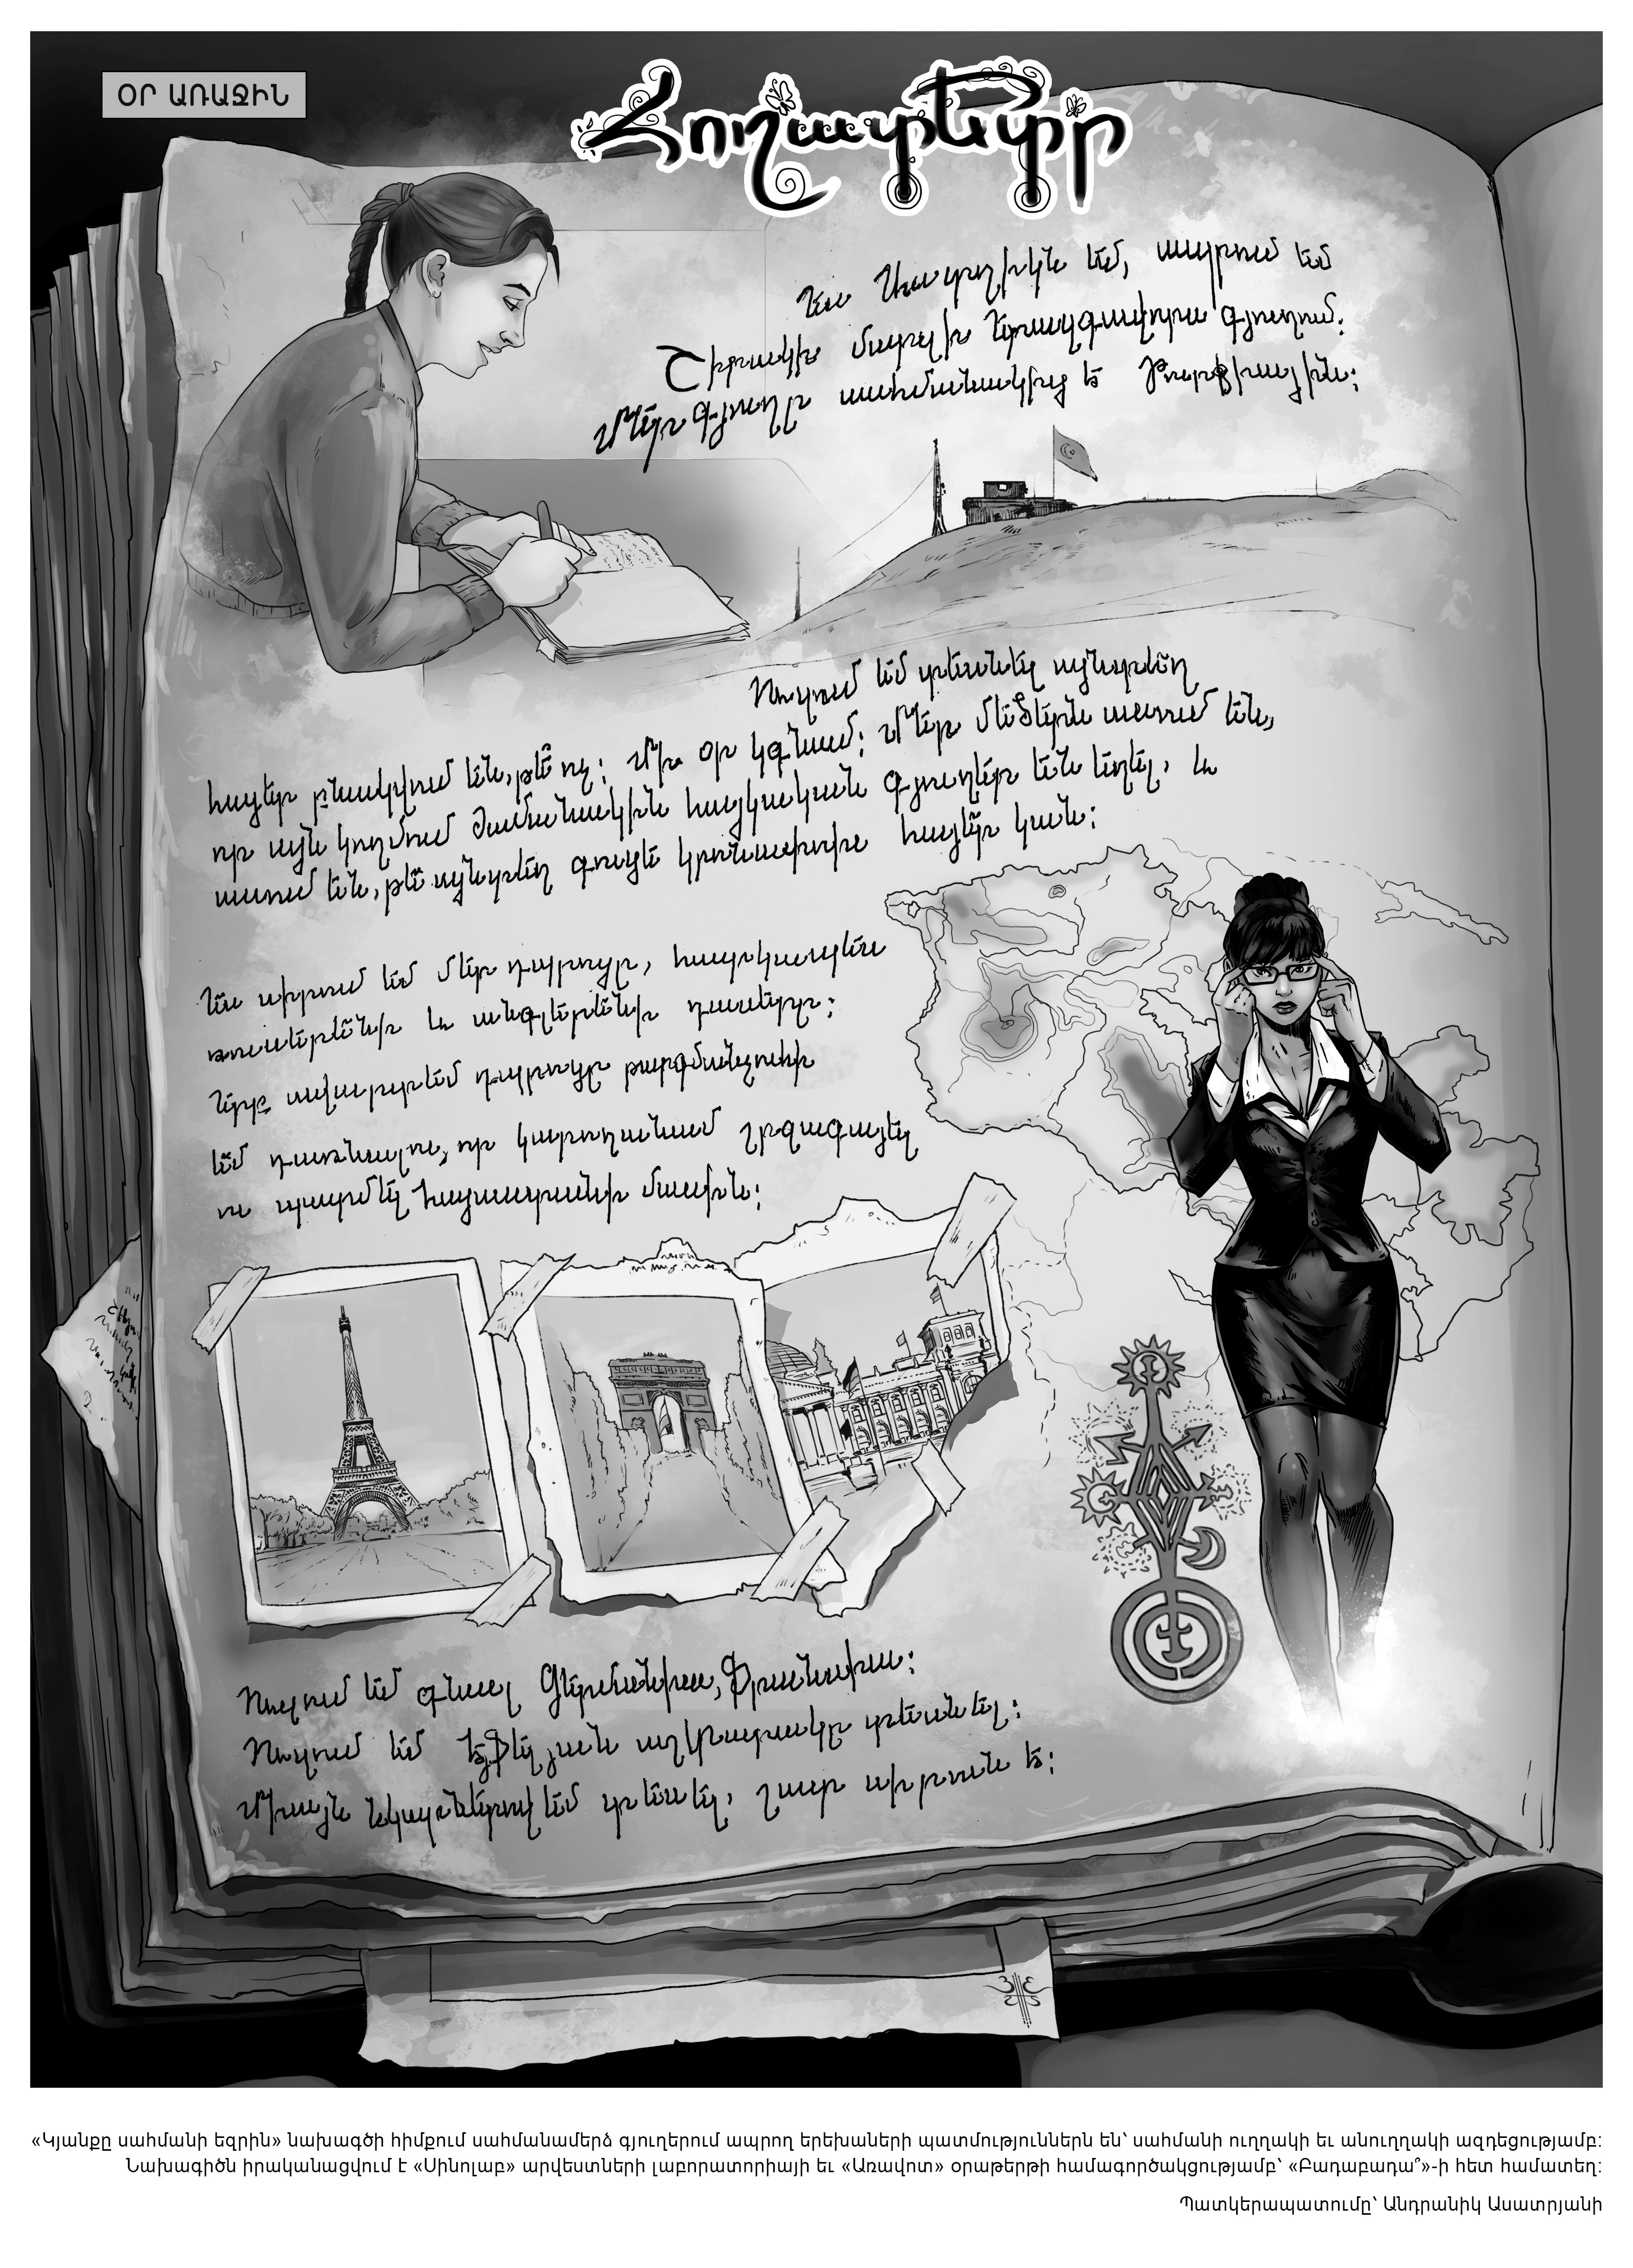 ՕՐ ԱՌԱՋԻՆ
Հողատետր
Ես Աստղիկն եմ, ապրում եմ
Շիրակի մարզի Երազգավորս գյուղում:
Մեր գյուղը սահմանակից է Թուրքիային:
Ուզում եմ տեսնել այնտեղ
հայեր բնակվում են, թե՞ ոչ: Մի օր կգնամ: Մեր մեծերն ասում են,
որ այն կողմում ժամանակին հայկական գյուղեր են եղել, և
ասում են, թե այնտեղ գուցե կրոնափոխ հայեր կան:
Ես սիրում եմ մեր դպրոցը, հատկապես
ռուսերենի և անգլերենի դասերը:
Երբ ավարտեմ դպրոցը թարգմանչուհի
եմ դառնալու, որ կարողանամ շրջագայել
ու պատմել Հայաստանի մասին:
Ուզում եմ գնալ Գերմանիա, Ֆրանսիա:
Ուզում եմ Էյֆելյան աշտարակը տեսնել:
Միայն նկարներով եմ տեսել, շատ սիրուն է:
«Կյանքը սահմանի եզրին» նախագծի հիմքում սահմանամերձ գյուղերում ապրող երեխաների պատմություններն են՝ սահմանի ուղղակի եւ անուղղակի ազդեցությամբ:
Նախագիծն իրականացվում է «Սինոլաբ» արվեստների լաբորատորիայի եւ «Առավոտ» օրաթերթի համագործակցությամբ՝ «Բադաբադա՞»-ի հետ համատեղ:
Պատկերապատումը՝ Անդրանիկ Ասատրյանի